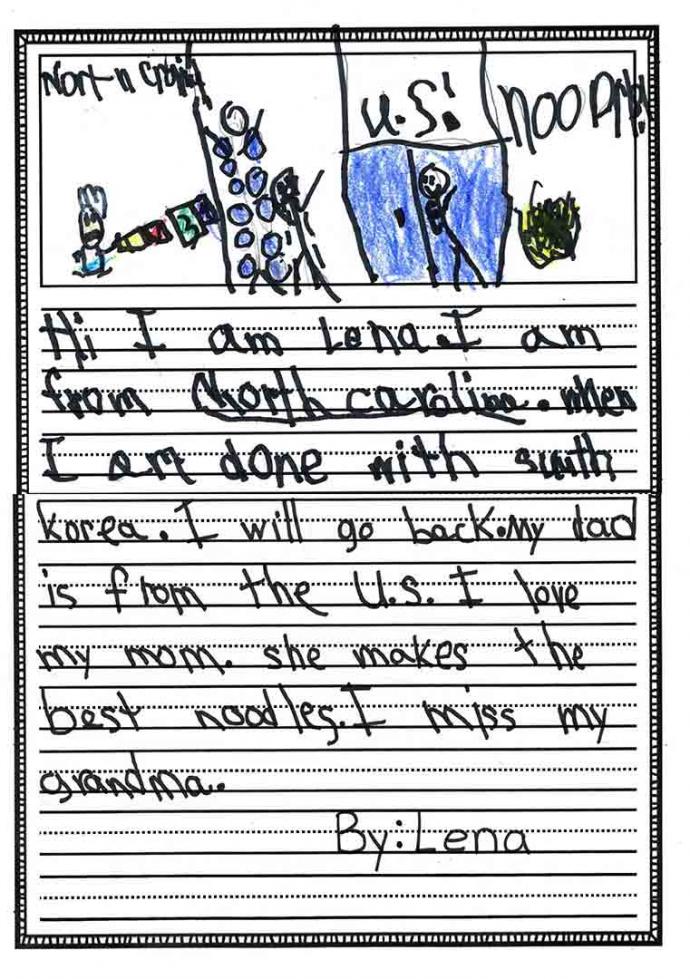 U.S!
Hi I am Lena. I am
from North carolina. when
I am done with suth
korea. I will go back. My dad
is from the U.S. I love
my mom. she makes the
best noodles. I miss my
grandma.
By: Lena